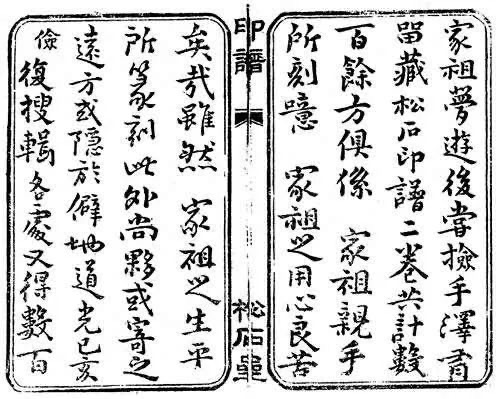 家祖夢遊後嘗撿手澤
畱藏松石印譜二卷共計數
百餘方俱係 家祖親手
所刻噫 家祖之用心良苦
印譜
松石
矣哉雖然 家祖之生平
所篆刻此外尚夥或寄之
遠方或隱於僻地道光已亥
儉復搜輯各處又得數百